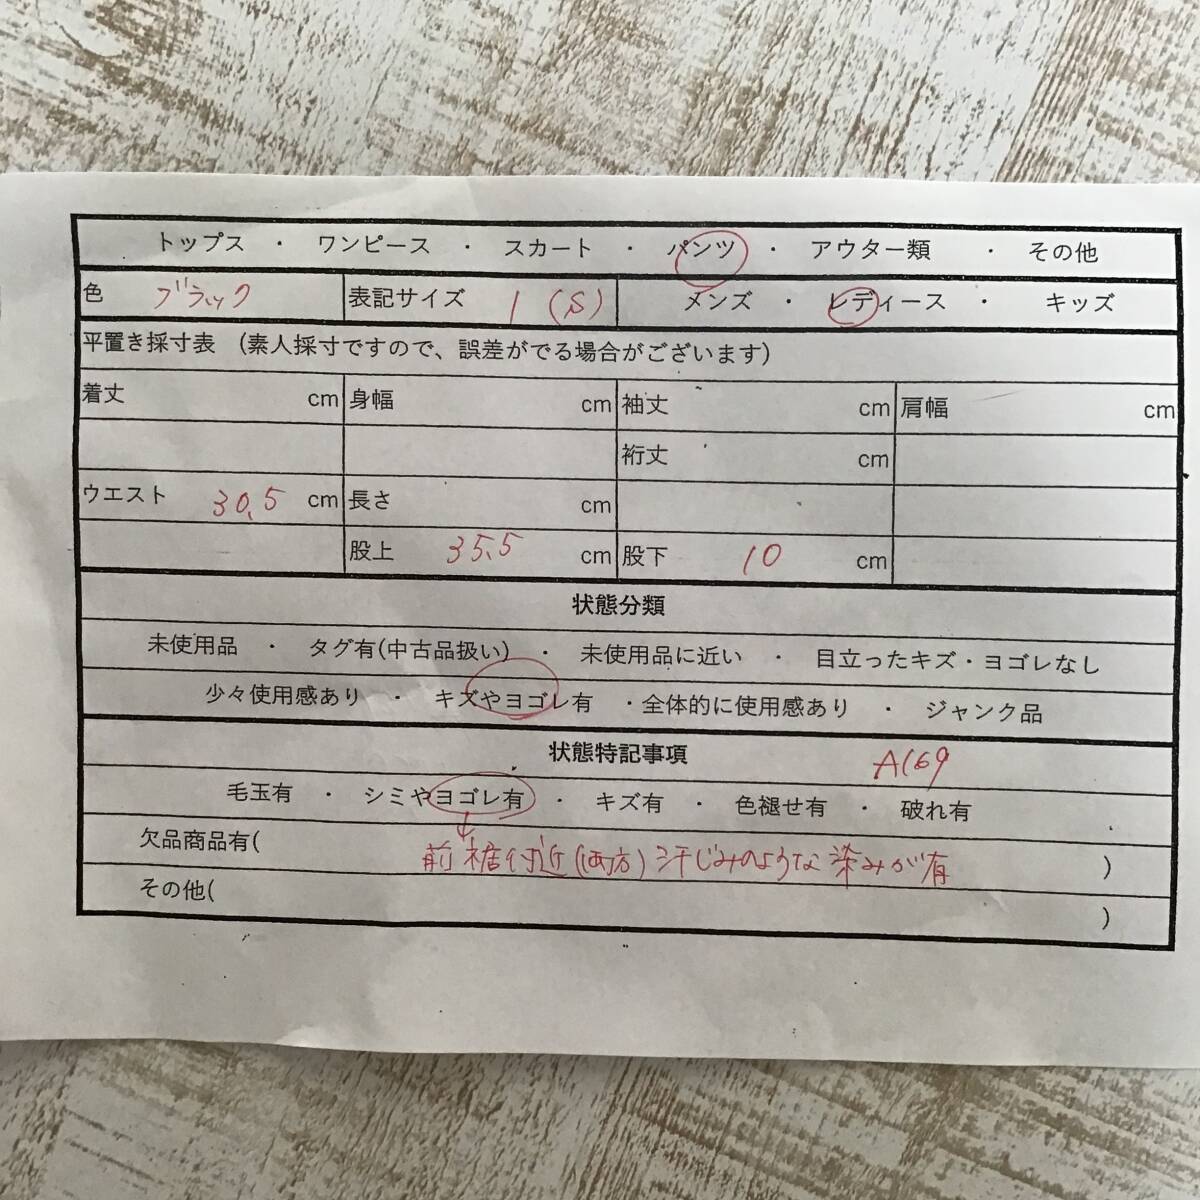 トップス ・ ワンピース ・ スカート ・ パンツ ・ アウター類 ・ その他
色 ブラック 表記サイズ 1 (S) メンズ ・ レディース ・ キッズ
平置き採寸表 (素人採寸ですので、誤差がでる場合がございます)
着丈 cm 身幅 cm 袖丈 cm 肩幅 cm
裄丈 cm
ウエスト 30.5 cm 長さ cm
股上 35.5 cm 股下 10 cm
状態分類
未使用品 ・ タグ有(中古品扱い) ・ 未使用品に近い ・ 目立ったキズ・ヨゴレなし
少々使用感あり ・ キズやヨゴレ有 ・全体的に使用感あり ・ ジャンク品
状態特記事項 A169
毛玉有 ・ シミやヨゴレ有 ・ キズ有 ・ 色褪せ有 ・ 破れ有
欠品商品有( 前裾付近(両方)汗じみのような染みが有 )
その他( )